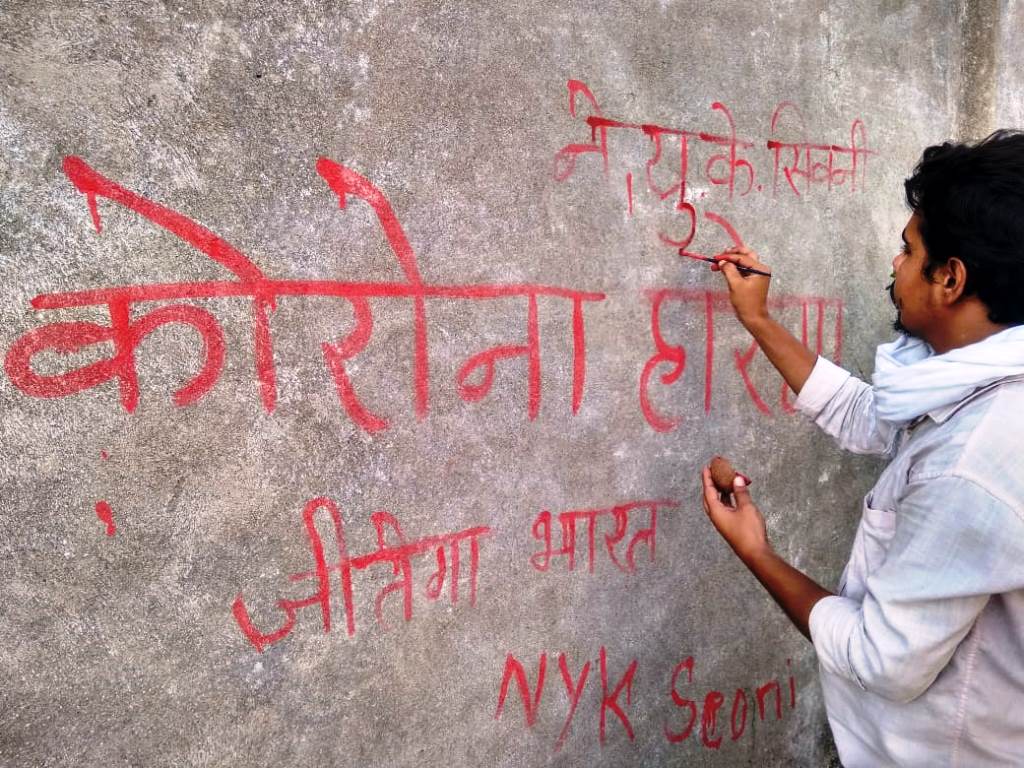 ने.यु.के.सिवनी
कोरोना हारेगा
जीतेगा भारत
NYK Seoni